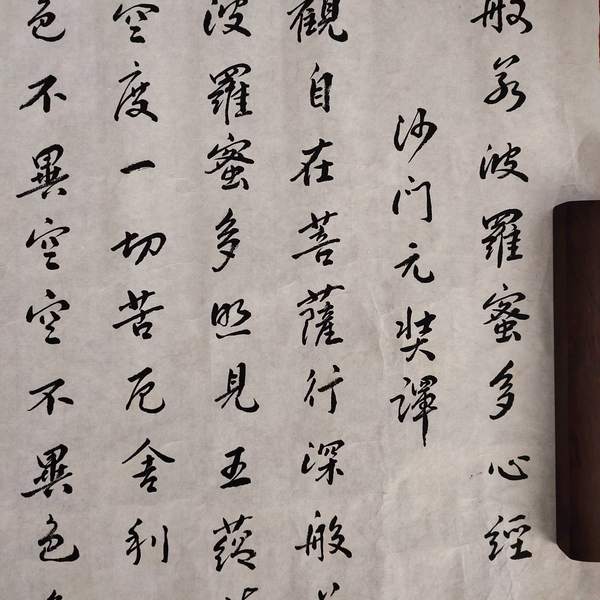 般若波羅蜜多心經
沙门元奘譯
觀自在菩薩行深般
波羅蜜多照見五蘊
空度一切苦厄舍利
色不異空空不異色